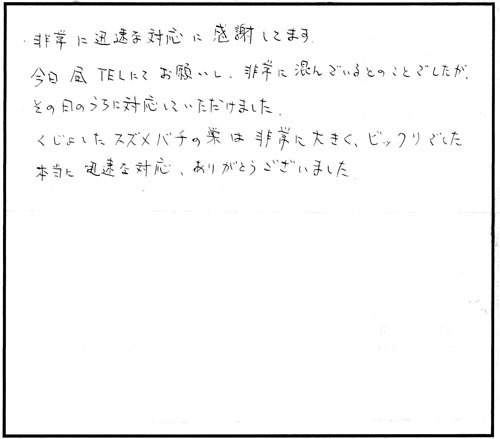 ・非常に迅速な対応に感謝してます.
今日 昼 TELにてお願いし、非常に混んでいるとのことでしたが、
その日のうちに対応していただけました.
くじょしたスズメバチの巣は非常に大きく、ビックリでした
本当に迅速な対応、ありがとうございました.